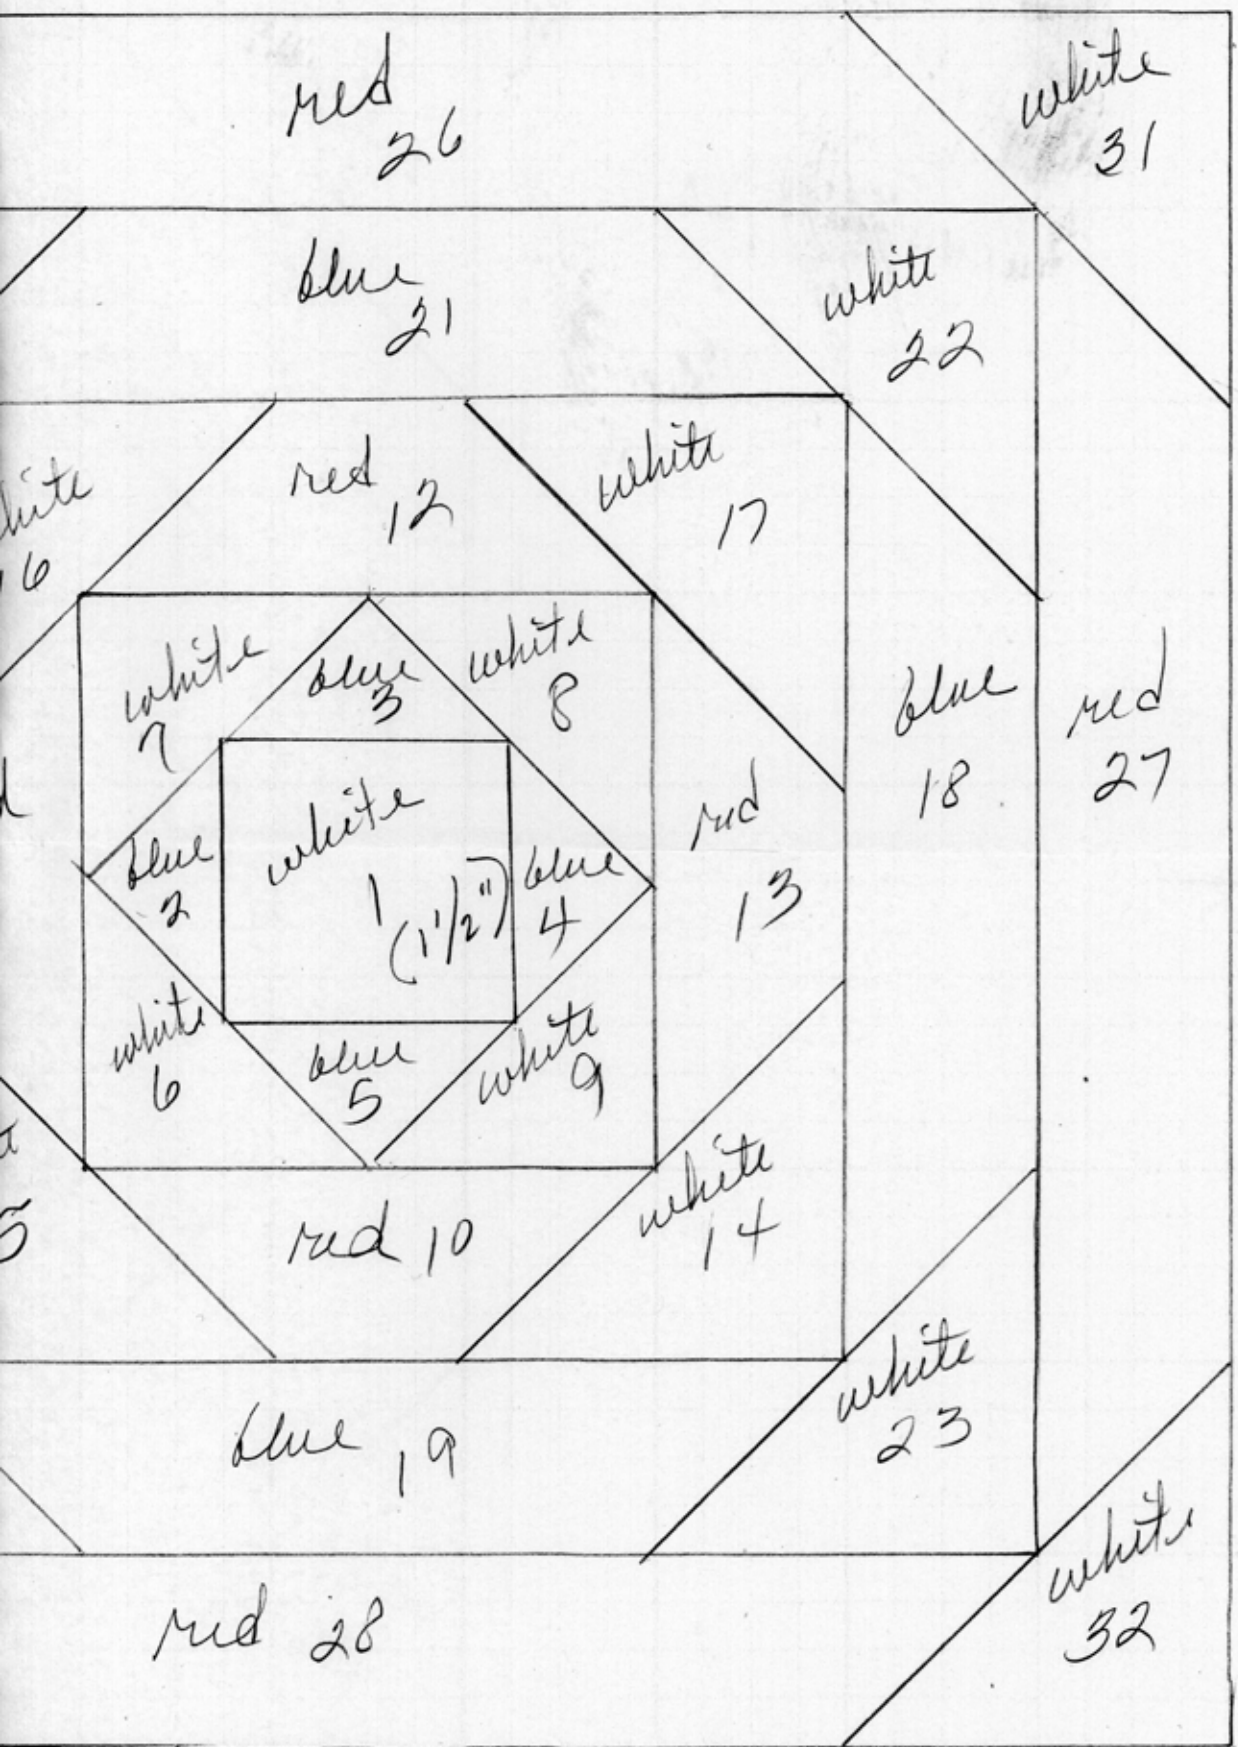 red
26
white
31
blue
21
white
22
hite
16
red
12
white
17
white
7
blue
3
white
8
blue
2
white
1
(1 1/2")
blue
4
red
13
blue
18
red
27
white
6
blue
5
white
9
red 10
white
14
5
blue 19
white
23
red 28
white
32